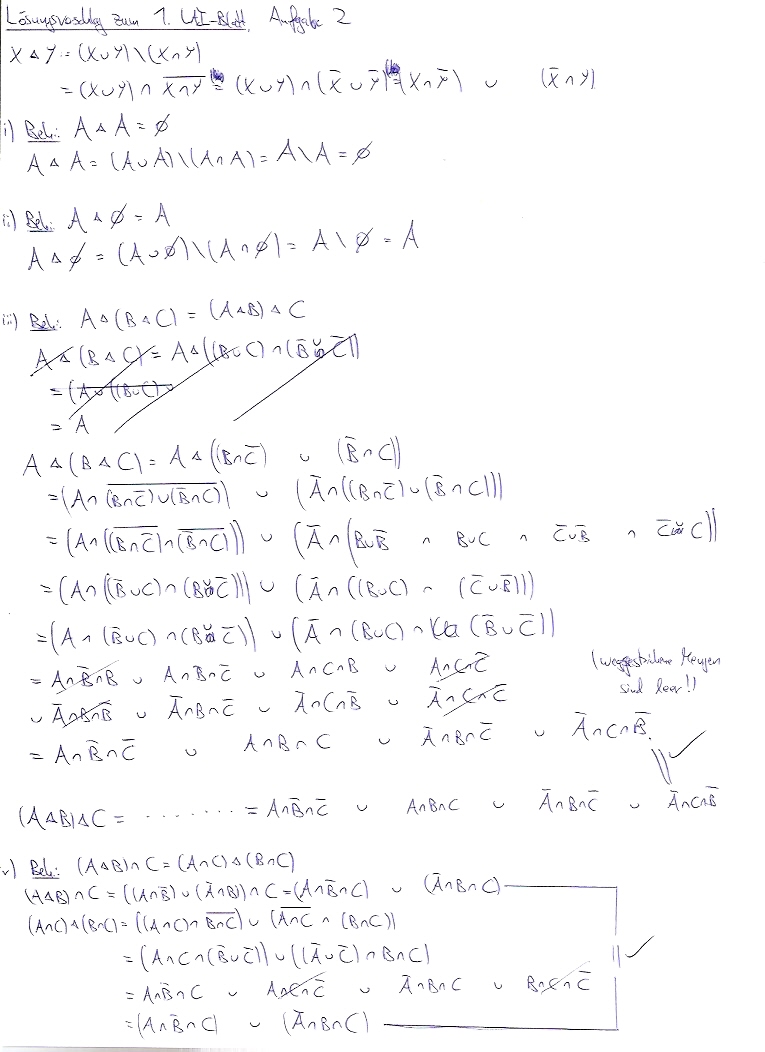 Lösungsvorschlag zum 1. LAI-Blatt, Aufgabe 2
X △ Y := (X∪Y) \ (X∩Y)
= (X∪Y) ∩ \overline{X∩Y} = (X∪Y) ∩ (X̄ ∪ Ȳ) = (X∩Ȳ) ∪ (X̄∩Y)
i) Beh.: A △ A = ∅
A △ A = (A∪A) \ (A∩A) = A\A = ∅
ii) Beh.: A △ ∅ = A
A △ ∅ = (A∪∅) \ (A∩∅) = A \ ∅ = A
iii) Beh.: A△(B△C) = (A△B)△C
A△(B△C) = A△((B∪C)∩(B̄∪C̄))
= (A∪((B∪C)∪
= A
A△(B△C) = A△((B∩C̄) ∪ (B̄∩C))
= (A∩\overline{(B∩C̄)∪(B̄∩C)}) ∪ (Ā∩((B∩C̄)∪(B̄∩C)))
= (A∩(\overline{(B∩C̄)}∩\overline{(B̄∩C)})) ∪ (Ā∩(B∪B̄ ∩ B∪C ∩ C̄∪B̄ ∩ C̄∪C))
= (A∩((B̄∪C)∩(B∪C̄))) ∪ (Ā∩((B∪C) ∩ (C̄∪B̄)))
= (A∩(B̄∪C)∩(B∪C̄)) ∪ (Ā∩(B∪C)∩(B̄∪C̄))
= A∩B̄∩B ∪ A∩B̄∩C̄ ∪ A∩C∩B ∪ A∩C∩C̄ (weggestrichene Mengen
∪ Ā∩B∩B̄ ∪ Ā∩B∩C̄ ∪ Ā∩C∩B̄ ∪ Ā∩C∩C̄ sind leer!!)
= A∩B̄∩C̄ ∪ A∩B∩C ∪ Ā∩B∩C̄ ∪ Ā∩C∩B̄. ✓
(A△B)△C = ........ = A∩B̄∩C̄ ∪ A∩B∩C ∪ Ā∩B∩C̄ ∪ Ā∩C∩B̄
v) Beh.: (A△B)∩C = (A∩C)△(B∩C)
(A△B)∩C = ((A∩B̄)∪(Ā∩B))∩C = (A∩B̄∩C) ∪ (Ā∩B∩C)
(A∩C)△(B∩C) = ((A∩C)∩\overline{B∩C}) ∪ (\overline{A∩C} ∩ (B∩C))
= (A∩C∩(B̄∪C̄)) ∪ ((Ā∪C̄)∩B∩C) || ✓
= A∩B̄∩C ∪ A∩C∩C̄ ∪ Ā∩B∩C ∪ B∩C∩C̄
= (A∩B̄∩C) ∪ (Ā∩B∩C)